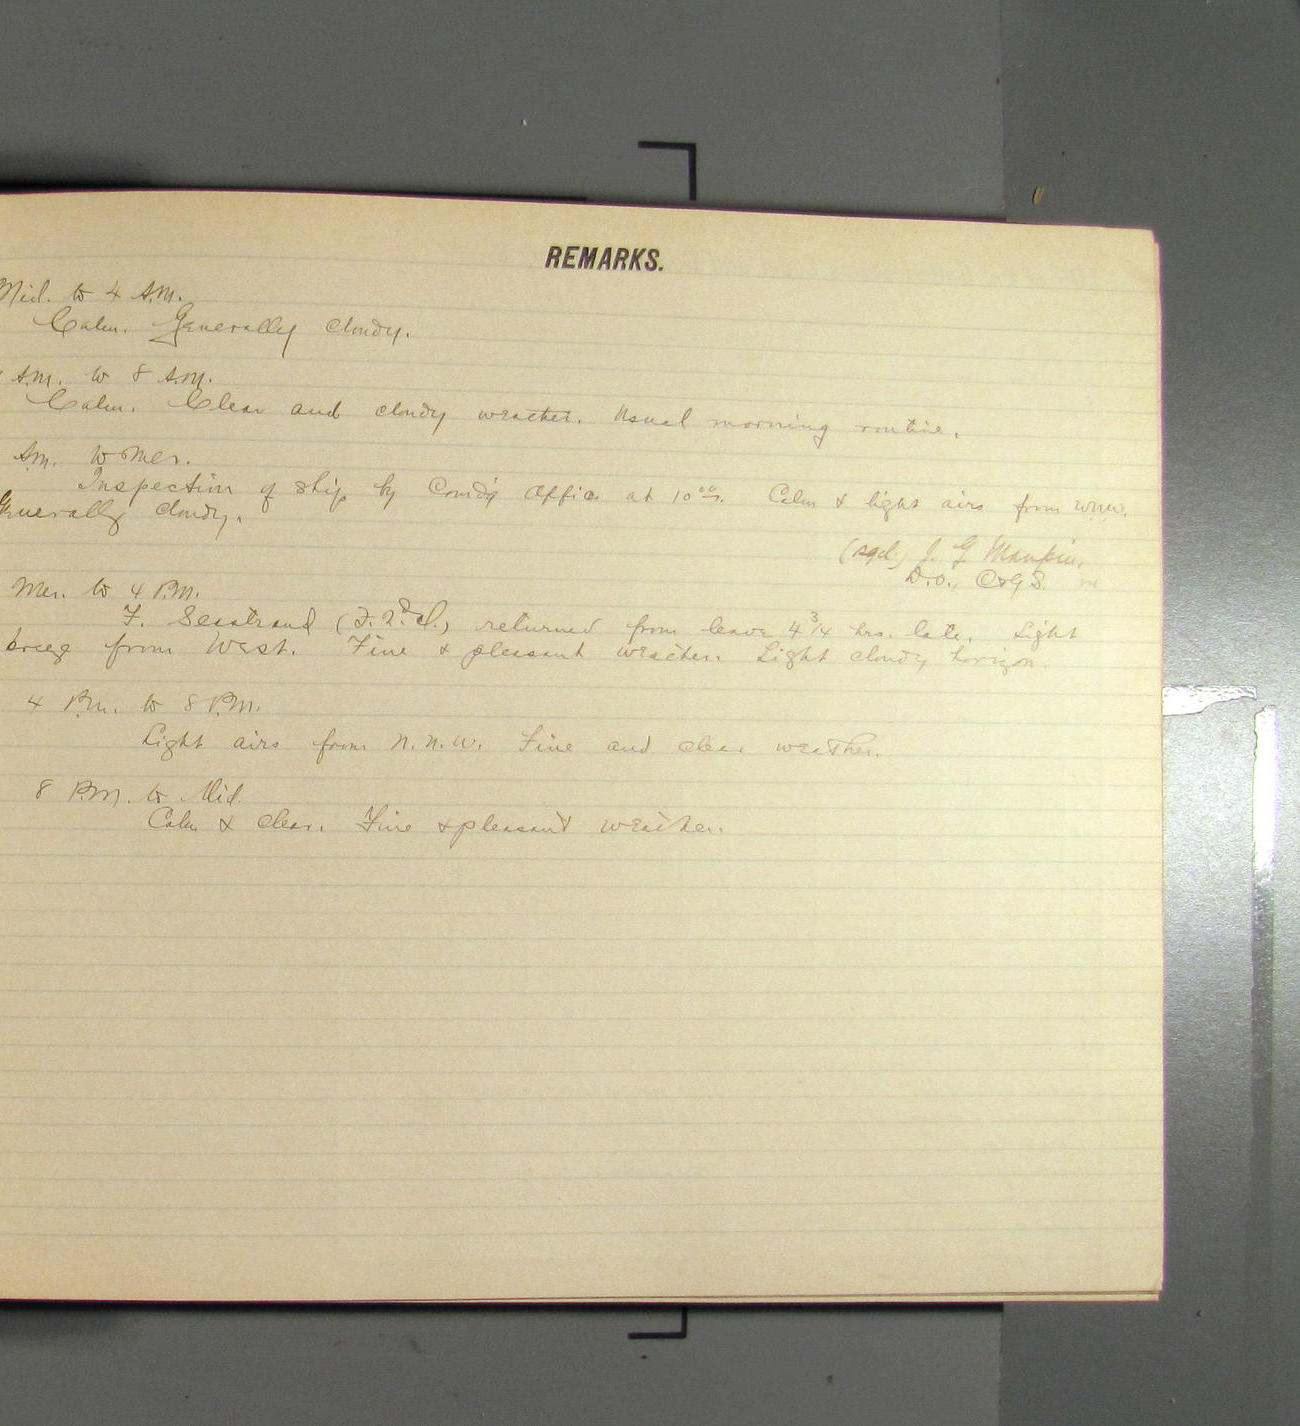 REMARKS.
Mid. to 4 A.M.
Calm. Generally cloudy.
A.M. to 8 A.M.
Calm. Clear and cloudy weather. Usual morning routine.
A.M. to Mer.
Inspection of ship by Comd'g Officer at 10⁰⁰. Calm & light airs from WNW.
Generally cloudy.
(sgd.) J. G. Maupin,
D.O., C&GS.
Mer. to 4 P.M.
F. Seastrand (F. 2nd cl.) returned from leave 4 3/4 hrs. late. Light
breeze from West. Fine & pleasant weather. Light cloudy horizon.
4 P.M. to 8 P.M.
Light airs from N.N.W. Fine and clear weather.
8 P.M. to Mid.
Calm & clear. Fine & pleasant weather.